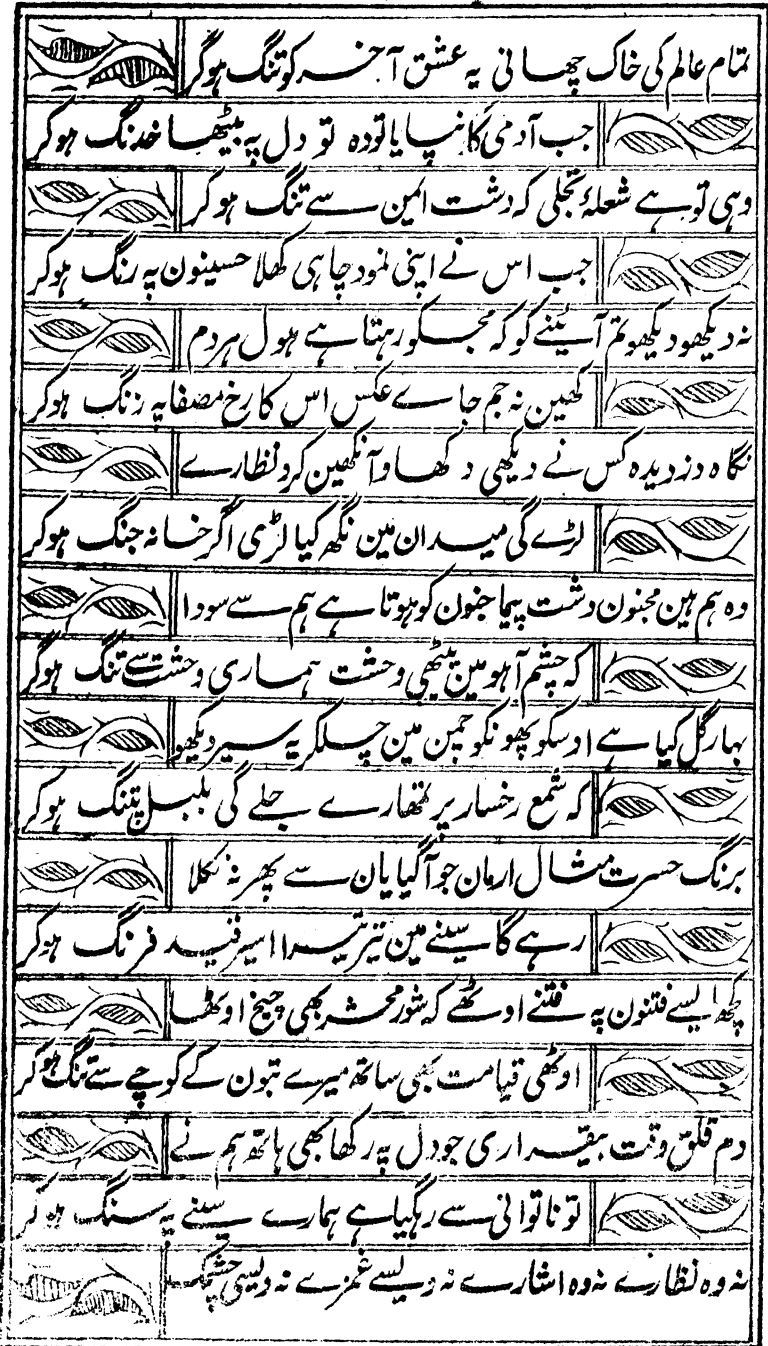 تمام عالم کی خاک چھانی یہ عشق آخر کو تنگ ہو کر
جب آدمی کا نپا یا تودہ تو دل پہ بیٹھا خدنگ ہو کر
وہی تو ہے شعلۂ تجلی کہ دشت ایمن سے تنگ ہو کر
جب اس نے اپنی نمود چاہی کھلا حسینون پہ رنگ ہو کر
نہ دیکھو دیکھو تم آئینے کو کہ مجکو رہتا ہے ہول ہر دم
کھین نہ جم جاے عکس اس کا رخ مصفا پہ زنگ ہو کر
نگاہ دزدیدہ کس نے دیکھی دکھاو آنکھین کرو نظارے
لڑے گی میدان مین نگھ کیا لڑی اگر خانہ جنگ ہو کر
وہ ہم ہین مجنون دشت پیما جنون کو ہوتا ہے ہم سے سودا
کہ چشم آہو مین بیٹھی وحشت ہماری وحشت سے تنگ ہو کر
بہار گل کیا ہے اوسکو پھونکو چمن مین چلکر یہ سیر دیکھو
کہ شمع رخسار پر تمھارے جلے گی بلبل پتنگ ہو کر
برنگ حسرت مثال ارمان جو آگیا یان سے پھر نہ نکلا
رہے گا سینے مین تیر تیرا اسیر قید فرنگ ہو کر
کچھ ایسے فتنون پہ فتنے اوٹھے کہ شور محشر بھی چیخ اوٹھا
اوٹھی قیامت بھی ساتھ میرے بتون کے کوچے سے تنگ ہو کر
دم قلق وقت بیقراری جو دل پہ رکھا بھی ہاتھ ہم نے
تو ناتوانی سے رہگیا ہے ہمارے سینے پہ سنگ ہو کر
نہ وہ نظارے نہ وہ اشارے نہ ویسے غمزے نہ ویسی چشمک